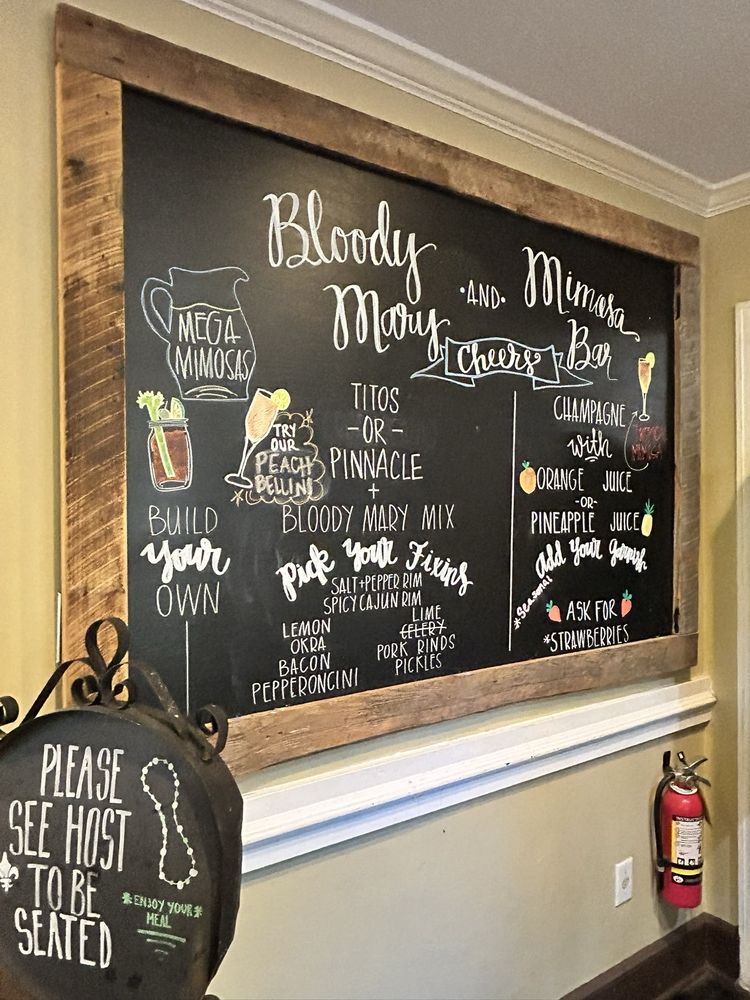 Bloody
Mary
•AND•
Mimosa
Bar
Cheers
MEGA
MIMOSAS
TRY
OUR
PEACH
BELLINI
BUILD
your
OWN
TITOS
-OR-
PINNACLE
+
BLOODY MARY MIX
Pick Your Fixins
SALT+PEPPER RIM
SPICY CAJUN RIM
LEMON
OKRA
BACON
PEPPERONCINI
LIME
CELERY
PORK RINDS
PICKLES
CHAMPAGNE
with
ORANGE JUICE
-OR-
PINEAPPLE JUICE
add Your garnish
*Seasonal
ASK FOR
*STRAWBERRIES
PLEASE
SEE HOST
TO BE
SEATED
*ENJOY YOUR*
MEAL